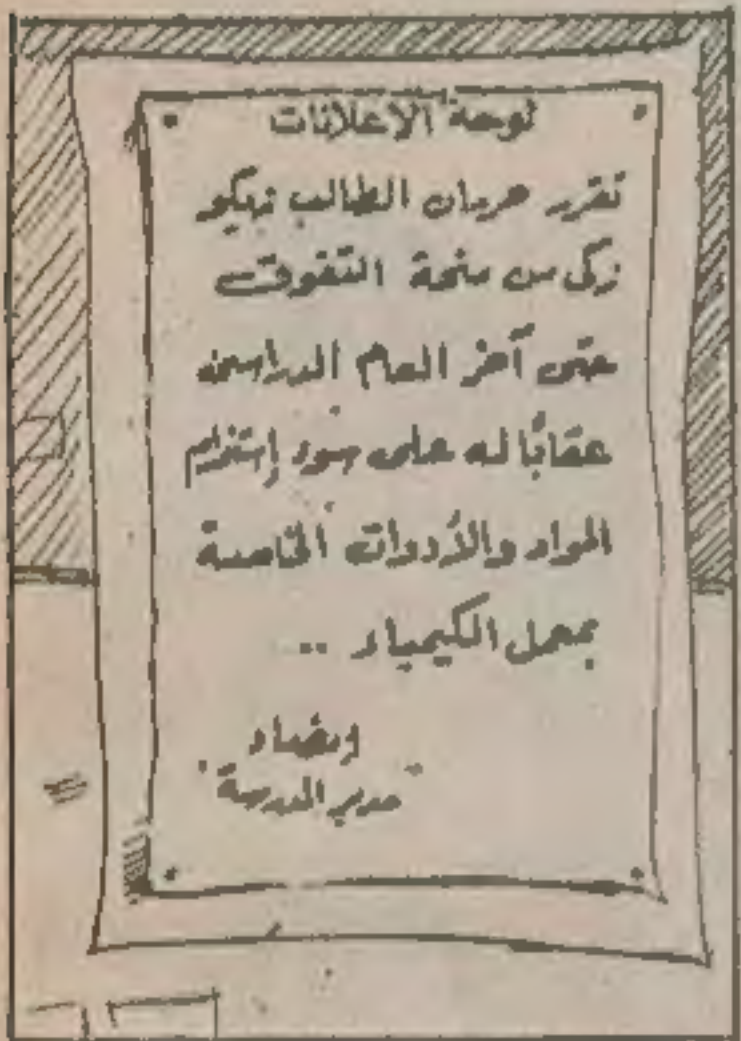 لوحة الإعلانات
تقرر حرمان الطالب نيكو
زكى من منحة التفوق
حتى آخر العام الدراسى
عقابًا له على سوء إستخدام
المواد والأدوات الخاصة
بمعمل الكيمياء ..
إمضاء
"مدير المدرسة"